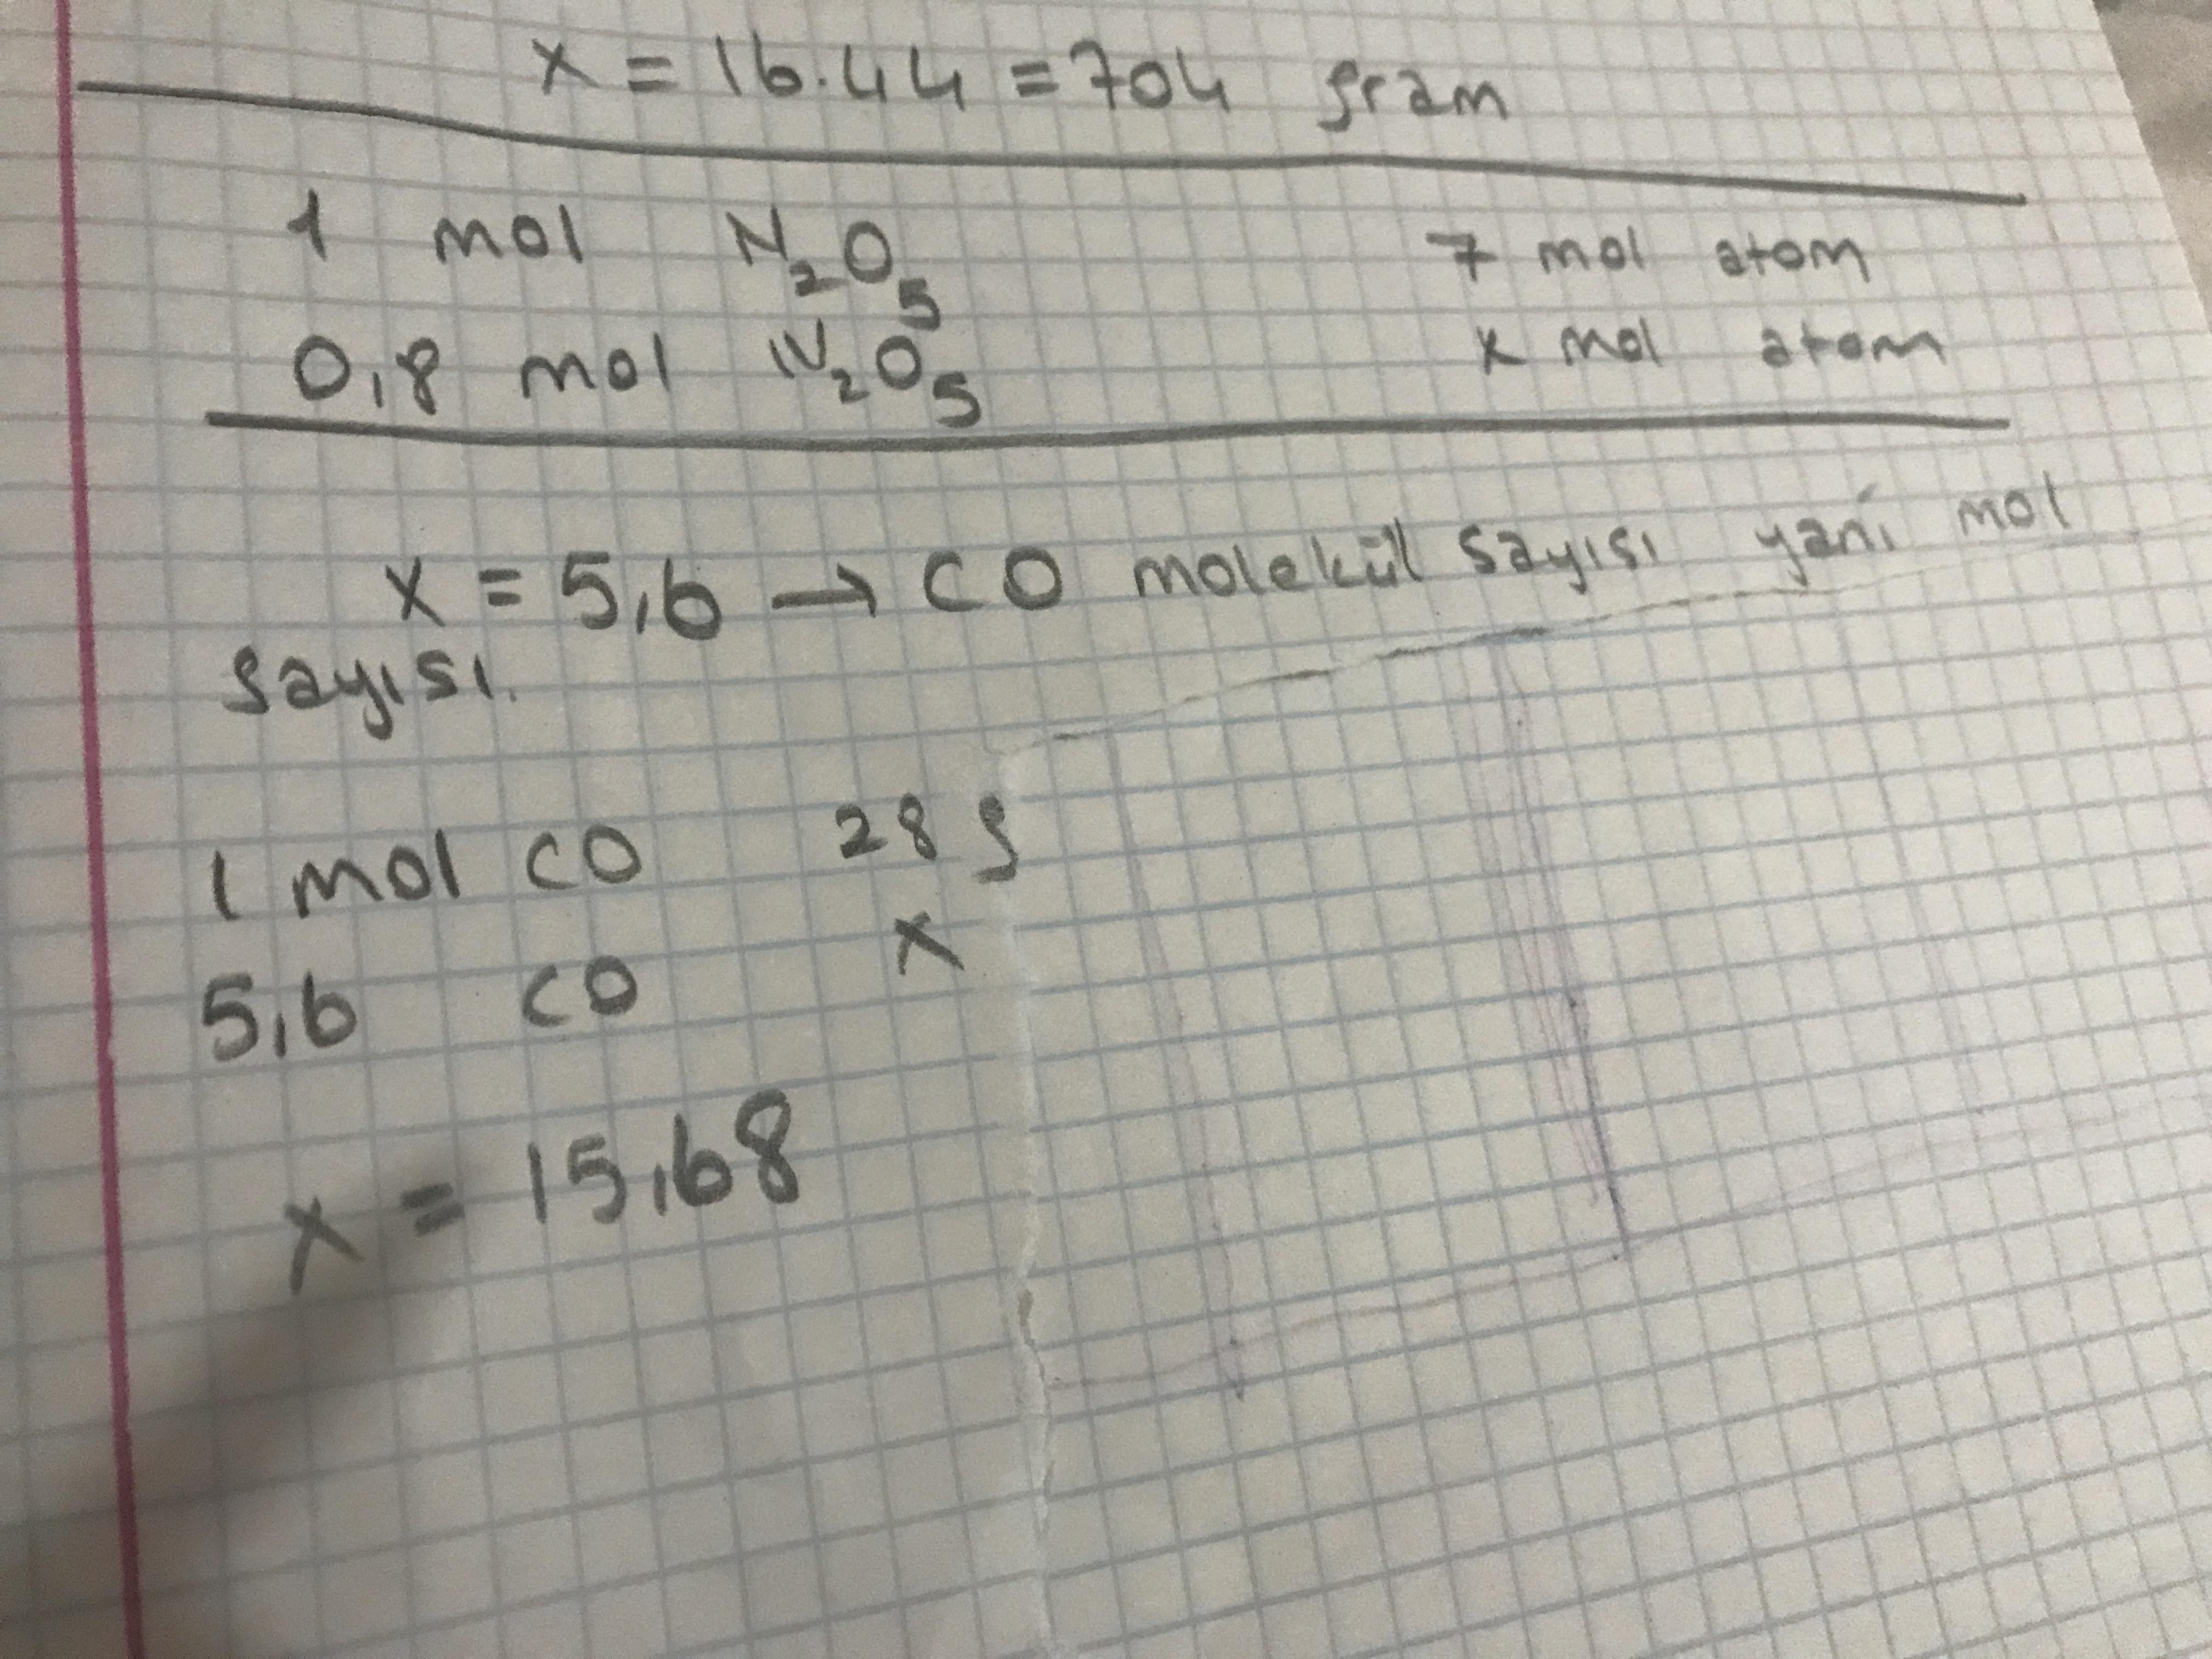 x = 16.44 = 704 gram
1 mol N₂O₅ 7 mol atom
0,8 mol N₂O₅ x mol atom
x = 5,6 → CO molekül sayısı yani mol
sayısı.
1 mol CO 28 g
5,6 CO x
x = 15,68